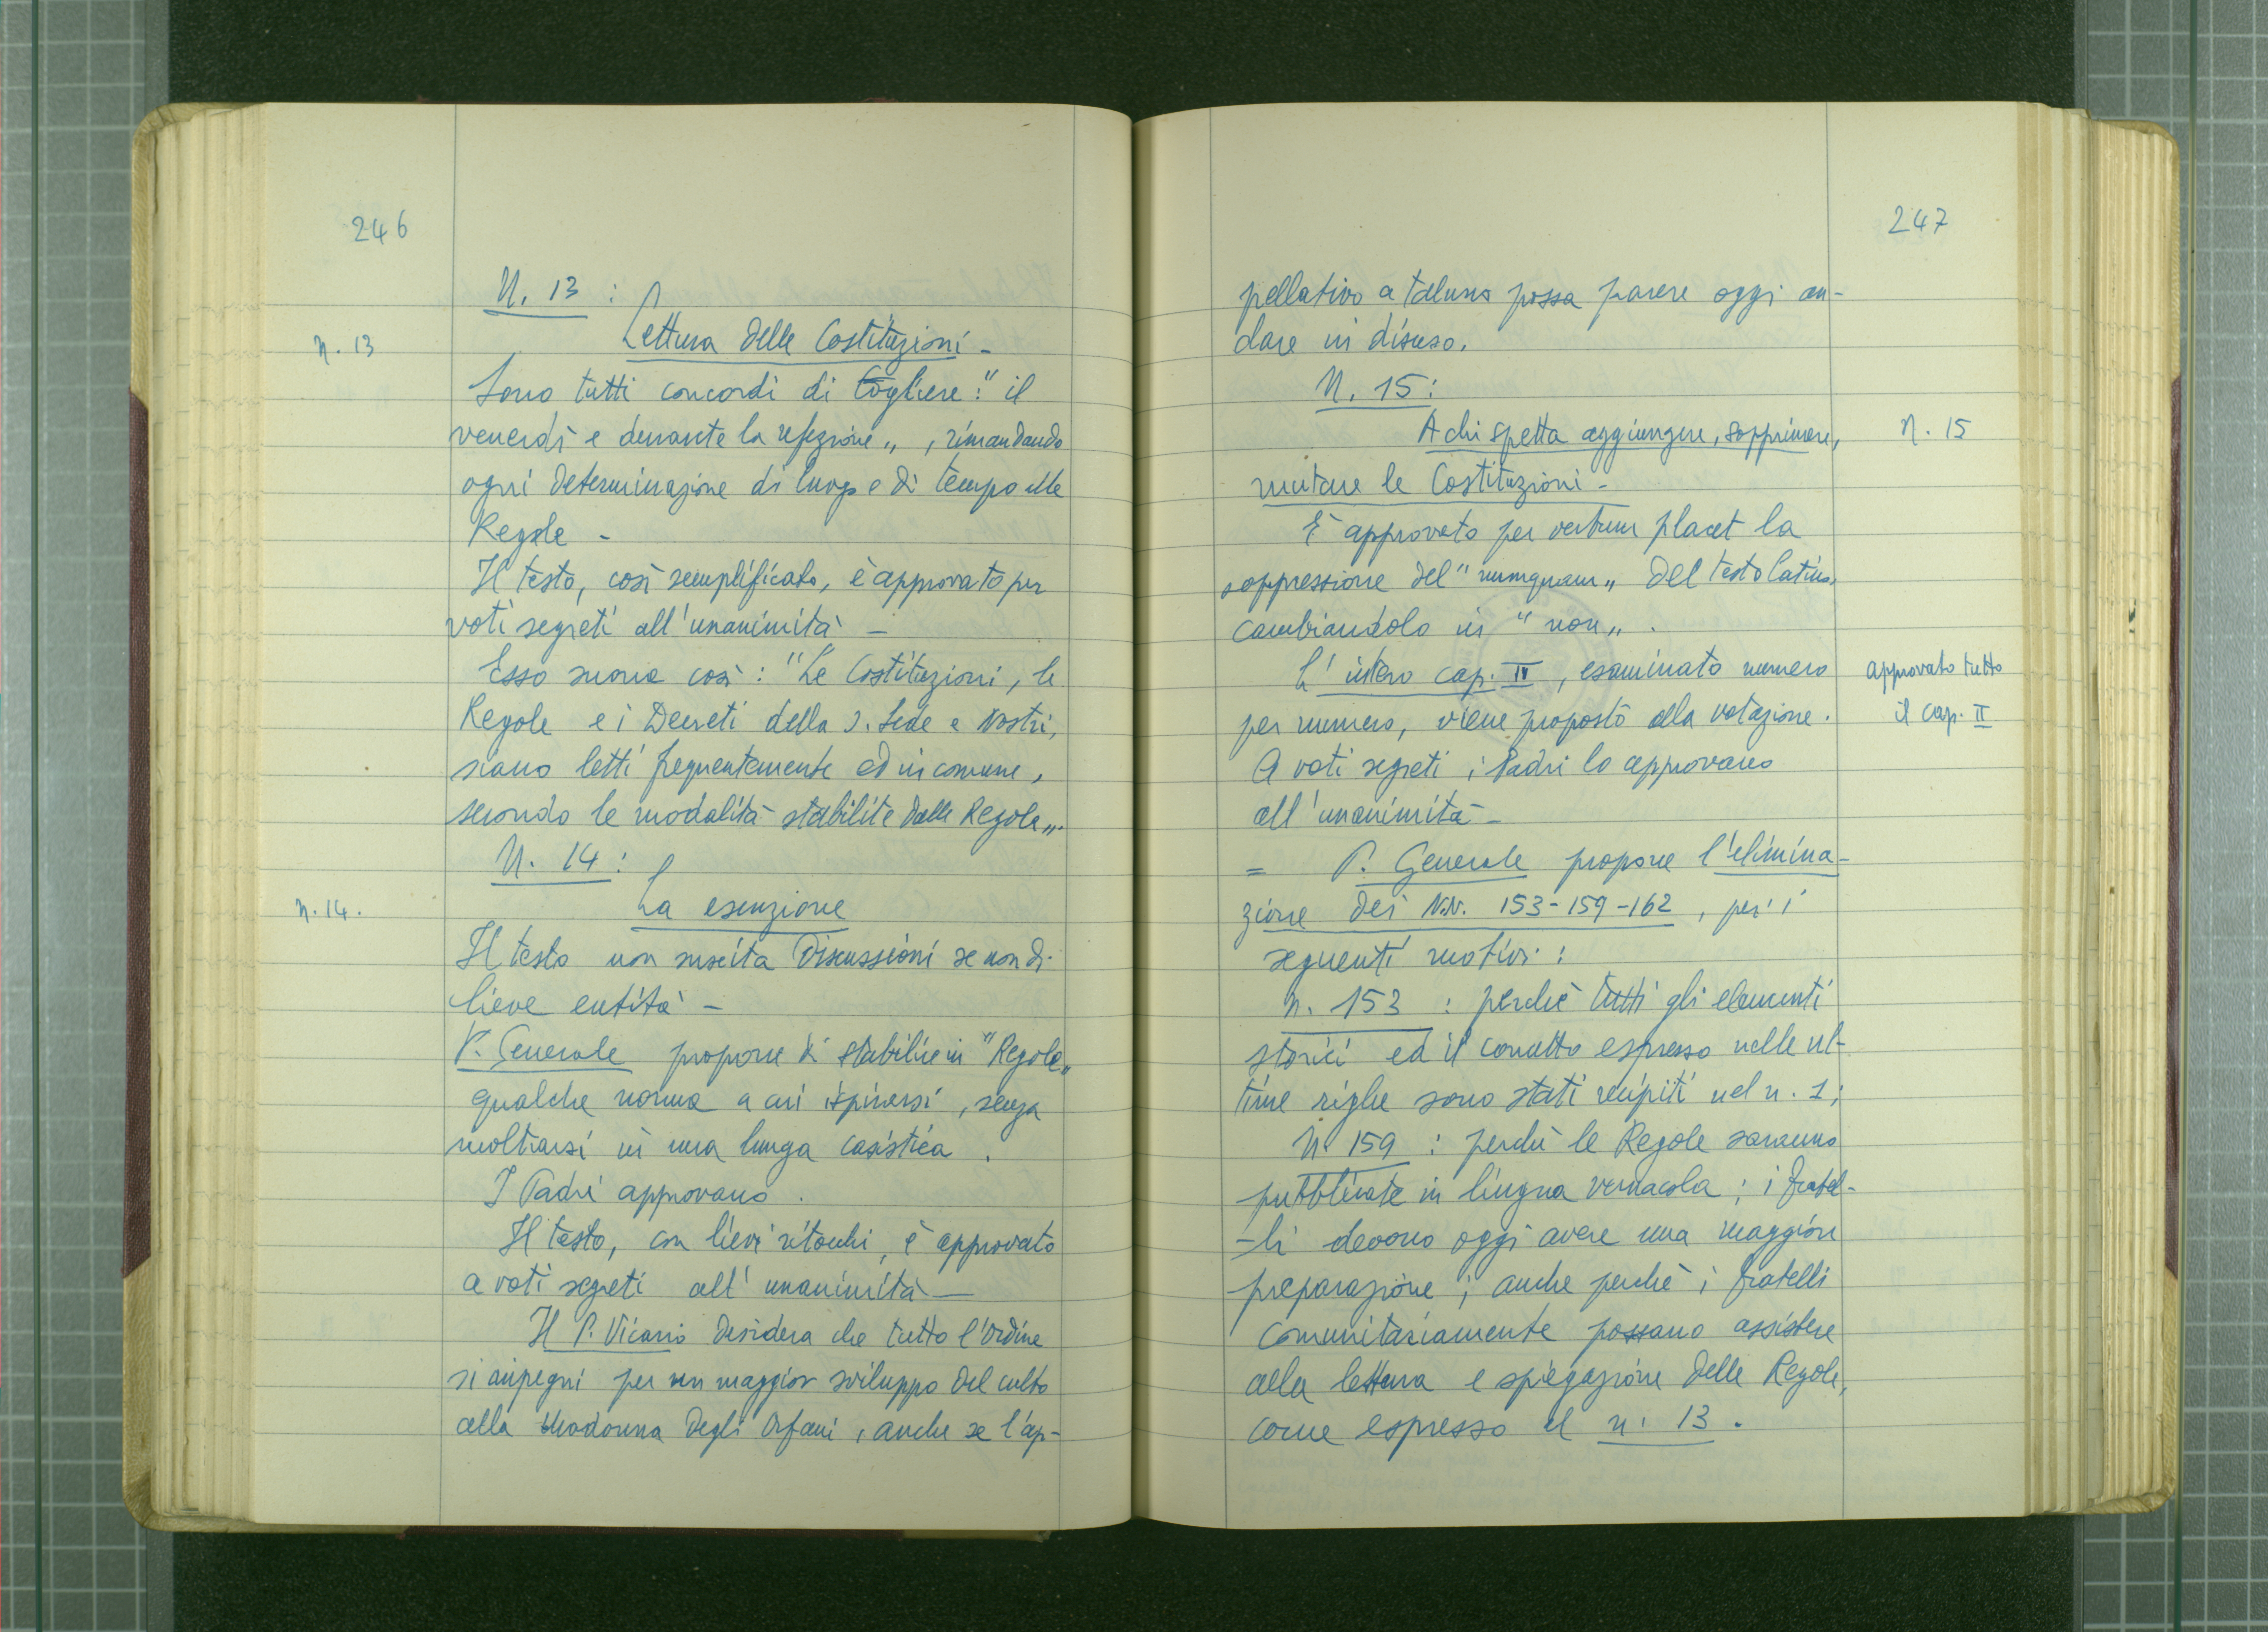 246
N. 13 :
n. 13
Lettura delle Costituzioni -
Sono tutti concordi di togliere : " il
venerdì e durante la refezione „ , rimandando
ogni determinazione di luogo e di tempo alle
Regole -
Il testo, così semplificato, è approvato per
voti segreti all'unanimità -
Esso suona così : "Le Costituzioni, le
Regole e i Decreti della S. Sede e Nostri,
siano letti frequentemente ed in comune,
secondo le modalità stabilite dalle Regole „.
N. 14 :
n. 14.
La esenzione
Il testo non suscita discussioni se non di
lieve entità -
P. Generale propone di stabilire in "Regole„
qualche norma a cui ispirarsi, senza
inoltrarsi in una lunga casistica .
I Padri approvano .
Il testo, con lievi ritocchi, è approvato
a voti segreti all'unanimità —
Il P. Vicario desidera che tutto l'Ordine
si impegni per un maggior sviluppo del culto
alla Madonna degli Orfani, anche se l'ap-
247
pellativo a taluno possa parere oggi an-
dare in disuso.
N. 15 :
A chi spetta aggiungere, sopprimere,
n. 15
mutare le Costituzioni -
È approvato per verbum placet la
soppressione del "numquam„ del testo latino,
cambiandolo in "non„ .
L'intero cap. II, esaminato numero
per numero, viene proposto alla votazione.
approvato tutto
il cap. II
A voti segreti i Padri lo approvano
all'unanimità -
= P. Generale propone l'elimina-
zione dei N.N. 153-159-162, per i
seguenti motivi :
n. 153 : perchè tutti gli elementi
storici ed il concetto espresso nelle ul-
time righe sono stati recipiti nel n. 1;
N. 159 : perchè le Regole saranno
pubblicate in lingua vernacola ; i fratel-
-li devono oggi avere una maggiore
preparazione ; anche perchè i fratelli
comunitariamente possano assistere
alla lettura e spiegazione delle Regole,
come espresso al n. 13 .